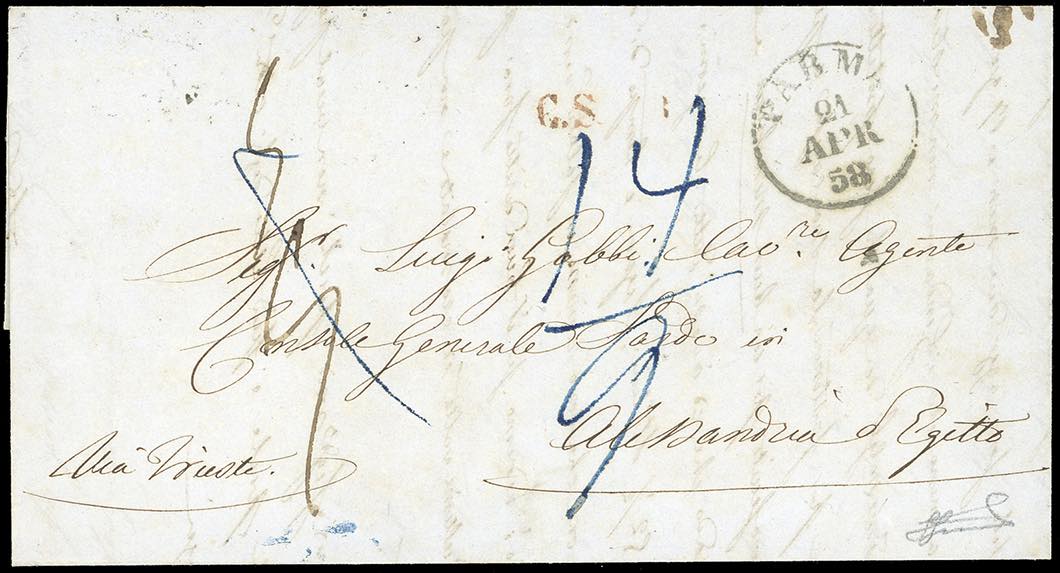 PARMA
21
APR
58
C.S.
14
9
Sigr. Luigi Gobbi Cavre. Agente
Console Generale Sardo in
Alessandria d'Egitto
Via Trieste.